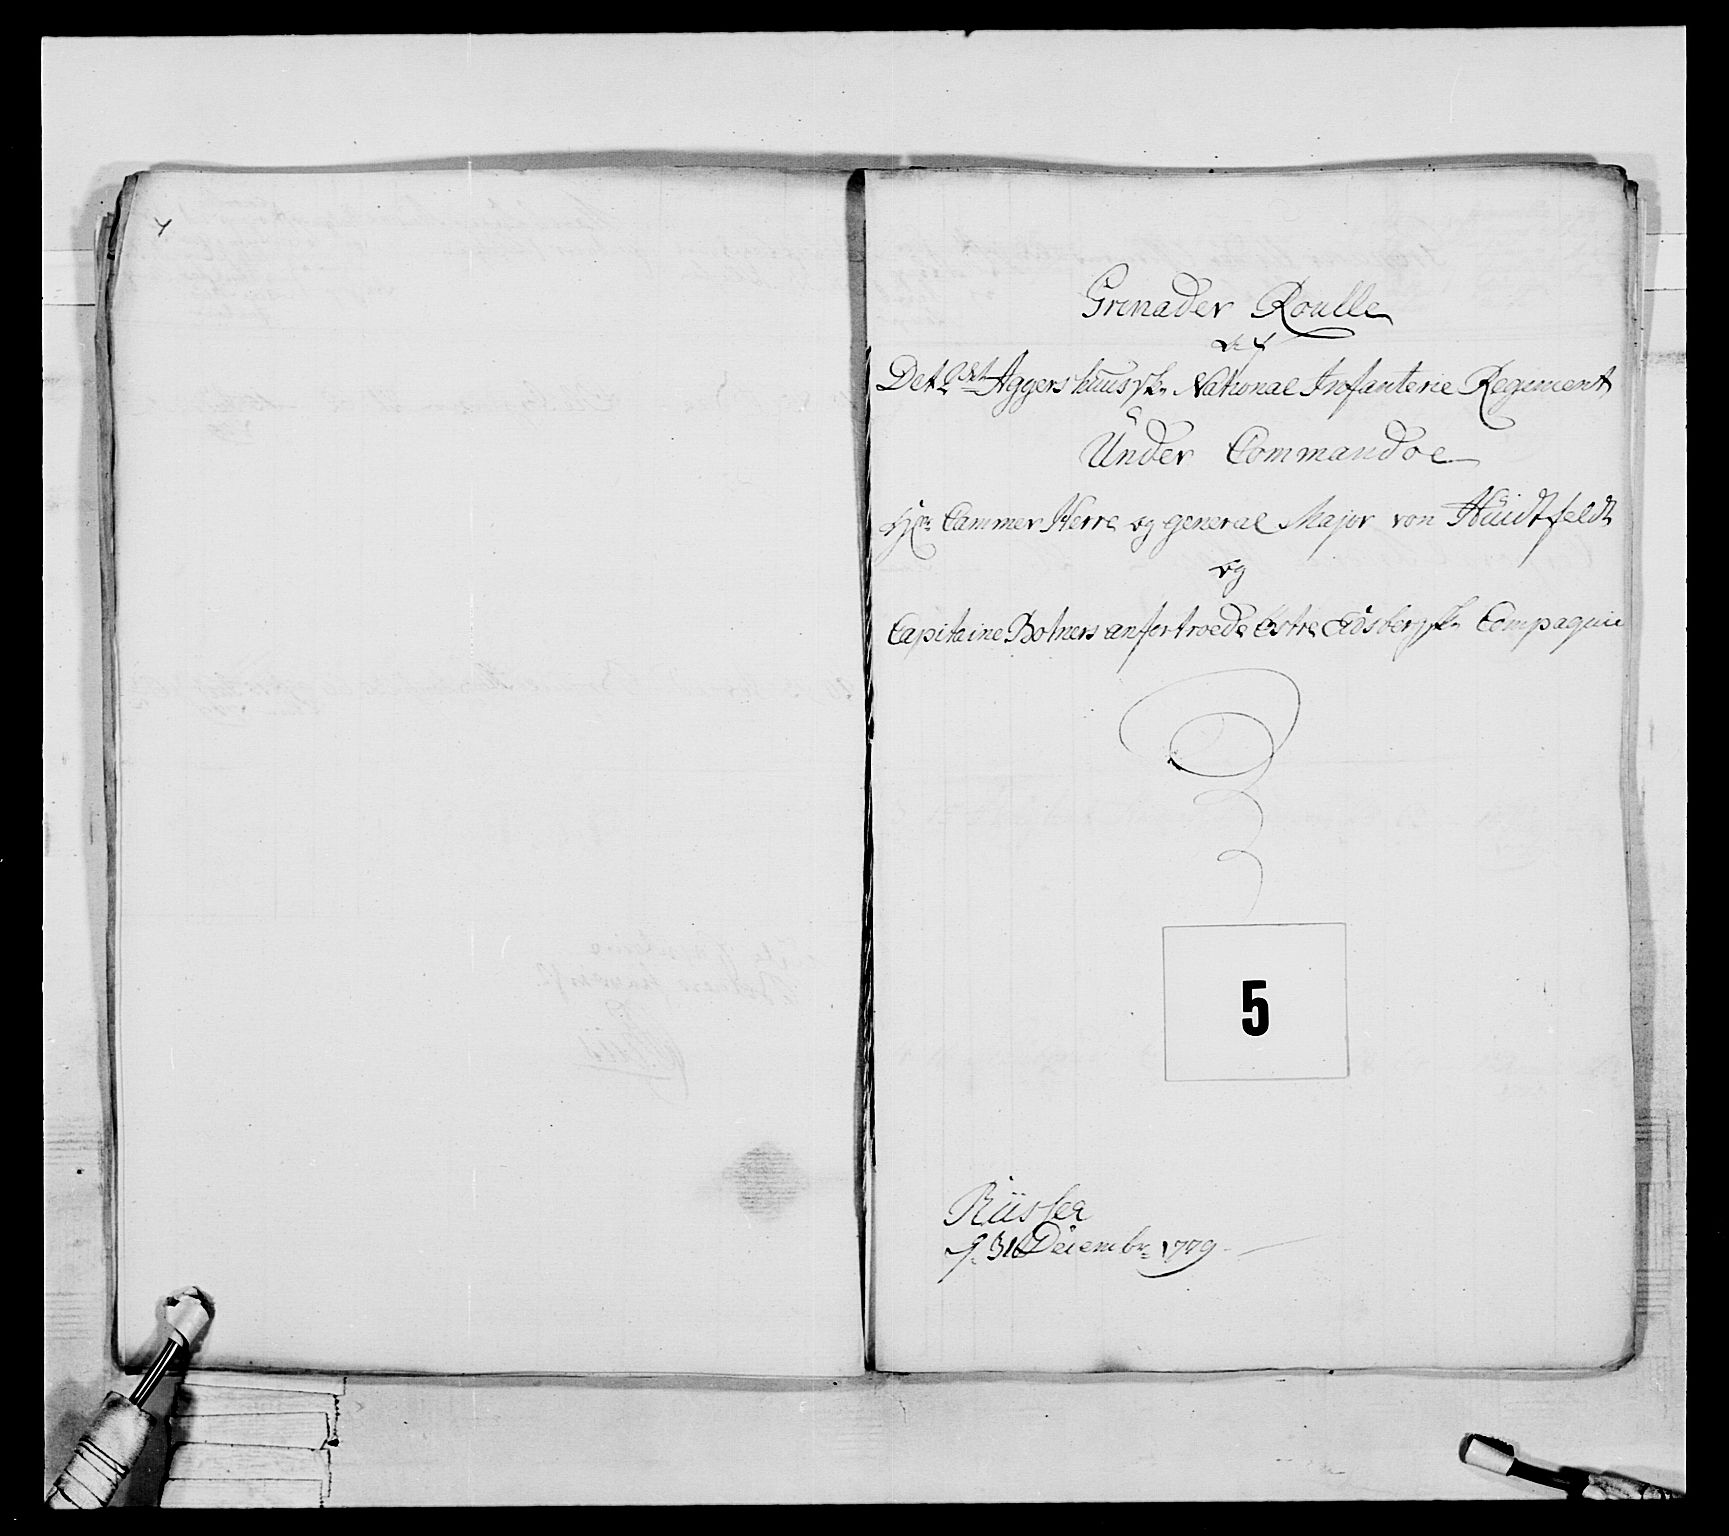 Grenader Roulle
af
Det 2det Aggershuusske National Infanterie Regiment
Under Commandoe
Hr. Cammer Herre og general Major von Huidtfeldt
og
Capitaine Bolners anfortroede Østre Eidsbergske Compagnie
5
d: 31 Decembr: 1779